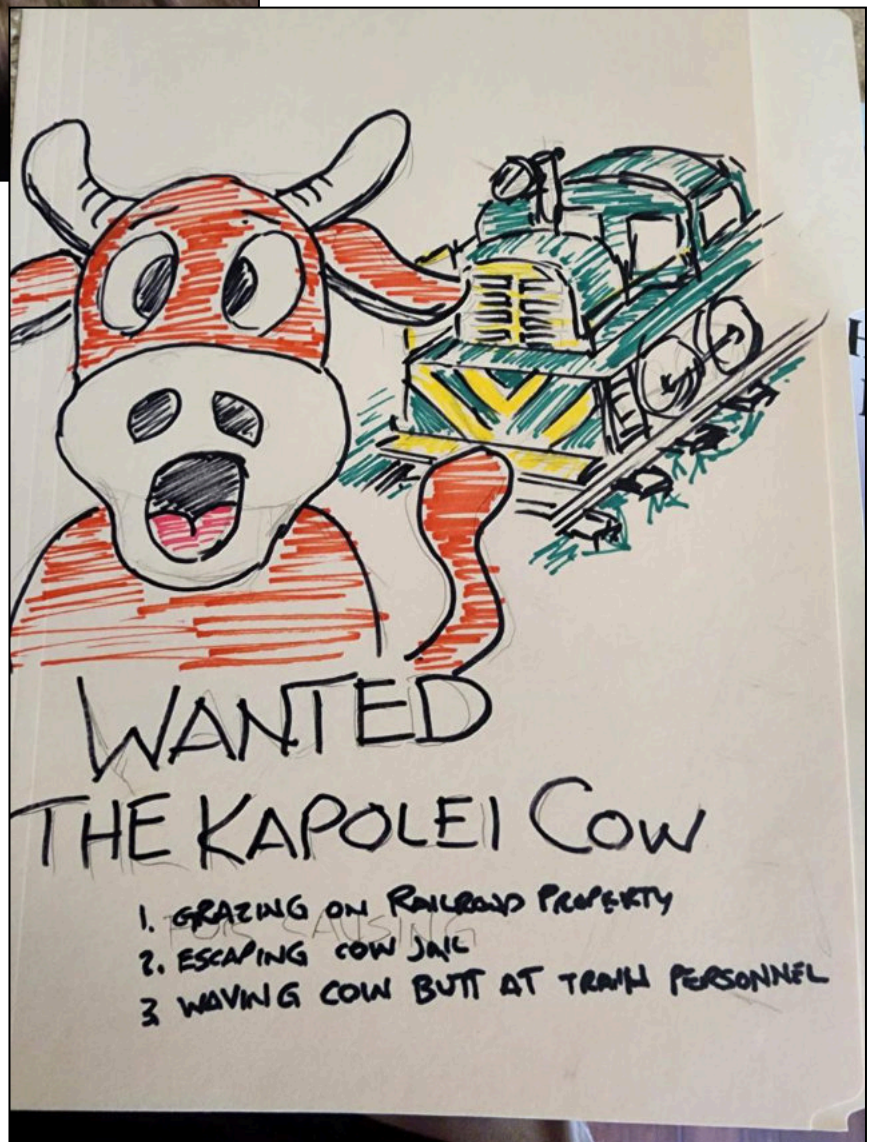 WANTED
THE KAPOLEI COW
1. GRAZING ON RAILROAD PROPERTY
FOR CAUSING
2. ESCAPING COW JAIL
3 WAVING COW BUTT AT TRAIN PERSONNEL